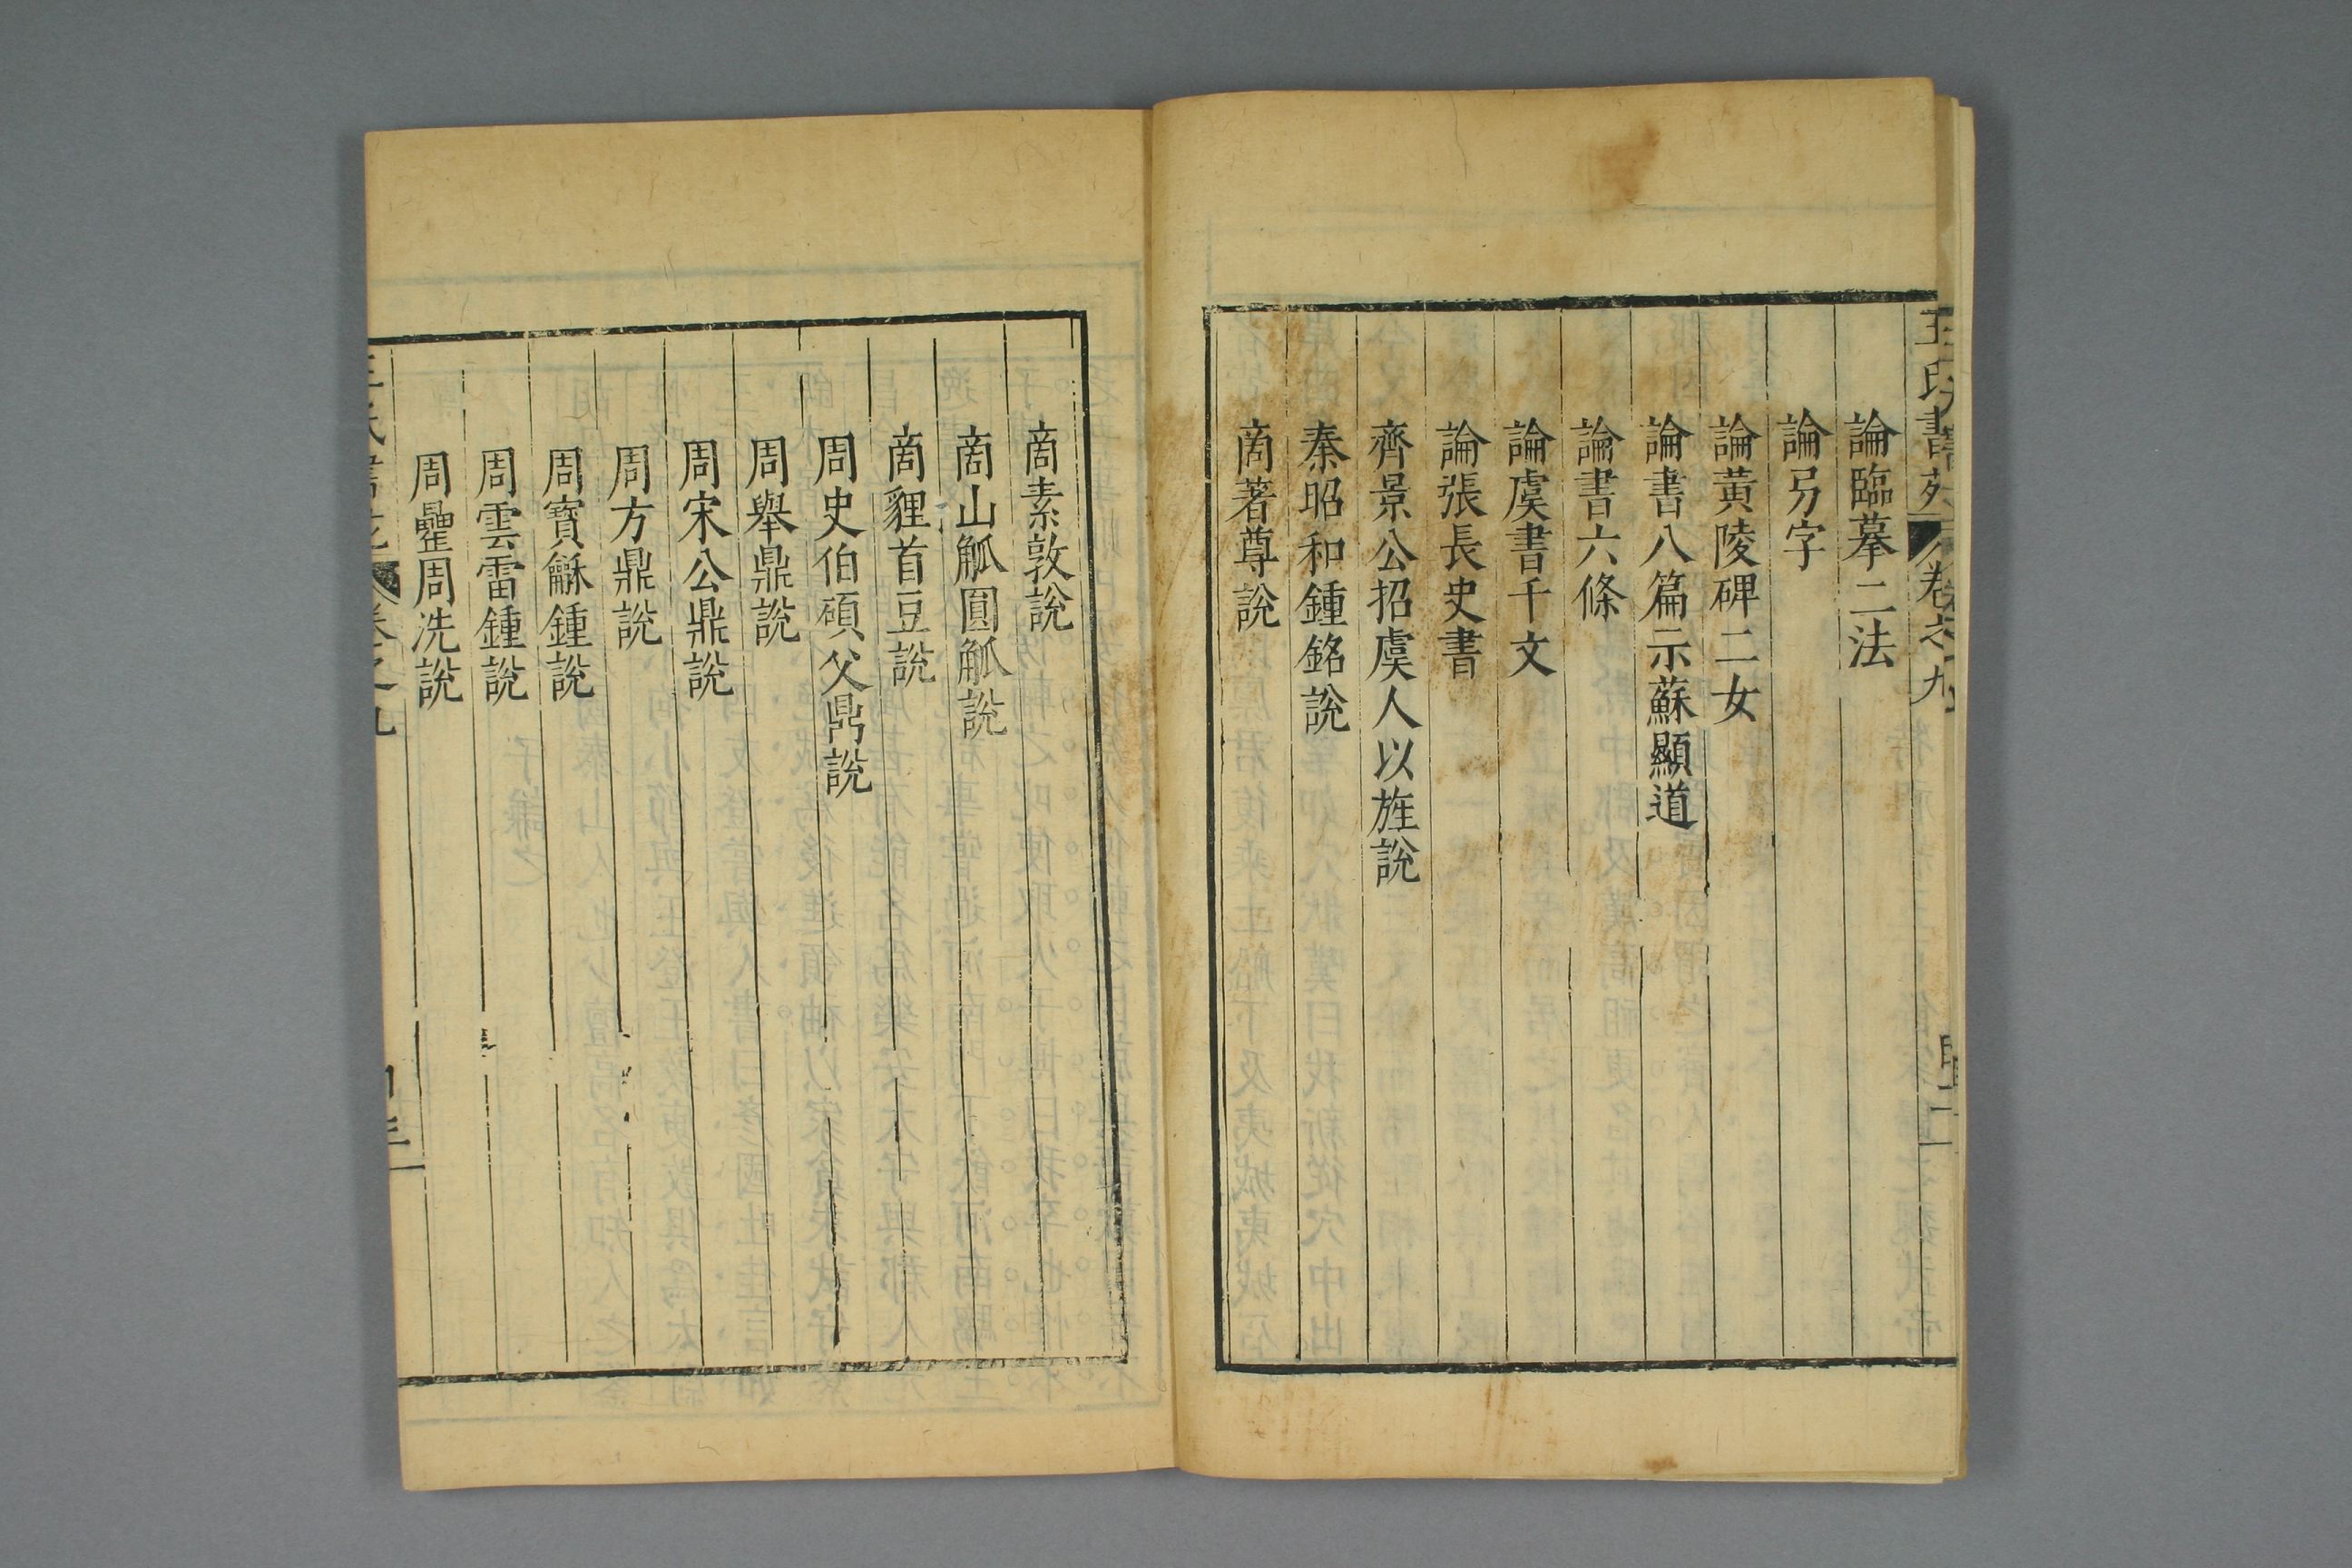 王氏書苑 卷之九
論臨摹二法
論另字
論黃陵碑二女
論書八篇示蘇顯道
論書六條
論虞書千文
論張長史書
齊景公招虞人以旌說
秦昭和鍾銘說
商著尊說
商素敦說
商山觚圓觚說
商貍首豆說
周史伯碩父鼎說
周舉鼎說
周宋公鼎說
周方鼎說
周寶龢鍾說
周雲雷鍾說
周罍周洗說